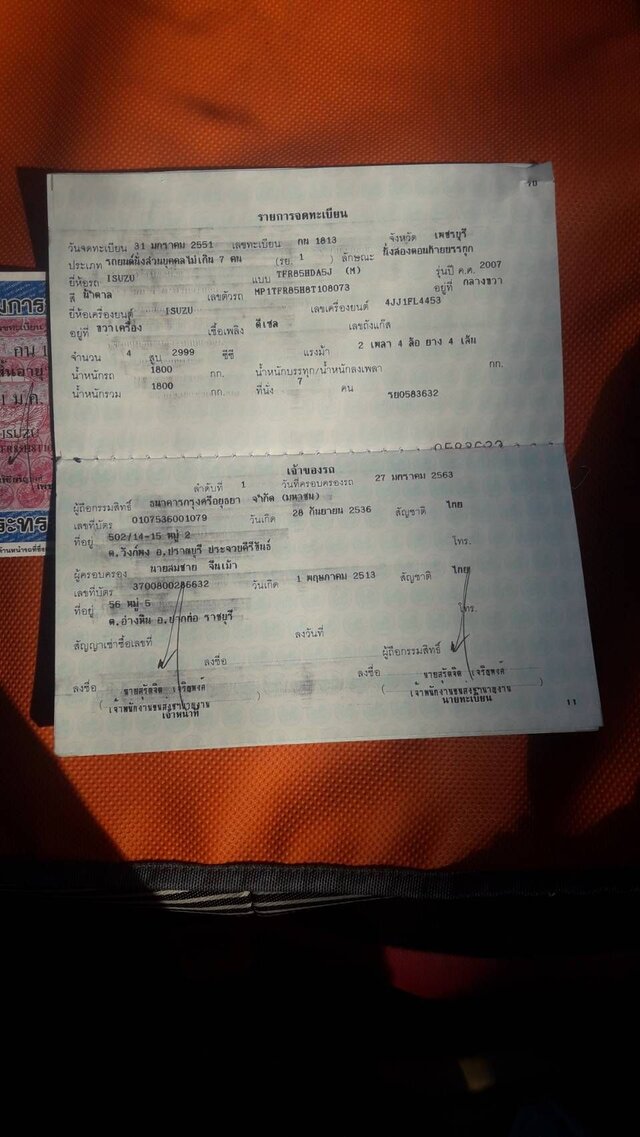 10
รายการจดทะเบียน
วันจดทะเบียน 31 มกราคม 2551 เลขทะเบียน กน 1813 จังหวัด เพชรบุรี
ประเภท รถยนต์นั่งส่วนบุคคลไม่เกิน 7 คน (รย. 1) ลักษณะ นั่งสองตอนท้ายบรรทุก
ยี่ห้อรถ ISUZU แบบ TFR85HDA5J (M) รุ่นปี ค.ศ. 2007
สี น้ำตาล เลขตัวรถ MP1TFR85H8T108073 อยู่ที่ กลางขวา
ยี่ห้อเครื่องยนต์ ISUZU เลขเครื่องยนต์ 4JJ1FL4453
อยู่ที่ ขวาเครื่อง เชื้อเพลิง ดีเซล เลขถังแก๊ส
จำนวน 4 สูบ 2999 ซีซี แรงม้า 2 เพลา 4 ล้อ ยาง 4 เส้น
น้ำหนักรถ 1800 กก. น้ำหนักบรรทุก/น้ำหนักลงเพลา กก.
น้ำหนักรวม 1800 กก. ที่นั่ง 7 คน รย0583632
เจ้าของรถ
ลำดับที่ 1 วันที่ครอบครองรถ 27 มกราคม 2563
ผู้ถือกรรมสิทธิ์ ธนาคารกรุงศรีอยุธยา จำกัด (มหาชน)
เลขที่บัตร 0107536001079 วันเกิด 28 กันยายน 2536 สัญชาติ ไทย
ที่อยู่ 502/14-15 หมู่ 2
ต.วังก์พง อ.ปราณบุรี ประจวบคีรีขันธ์ โทร.
ผู้ครอบครอง นายสมชาย จีนเม้า
เลขที่บัตร 3700800286632 วันเกิด 1 พฤษภาคม 2513 สัญชาติ ไทย
ที่อยู่ 56 หมู่ 5
ต.อ่างหิน อ.ปากท่อ ราชบุรี โทร.
สัญญาเช่าซื้อเลขที่ ลงวันที่ ผู้ถือกรรมสิทธิ์
ลงชื่อ
ลงชื่อ นายสุรัตจิต เจริญพงค์ ลงชื่อ นายสุรัตจิต เจริญพงค์
(เจ้าพนักงานขนส่งชำนาญงาน) (เจ้าพนักงานขนส่งชำนาญงาน)
เจ้าหน้าที่ นายทะเบียน
11